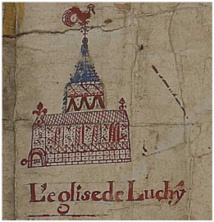 L'eglise de Luchy